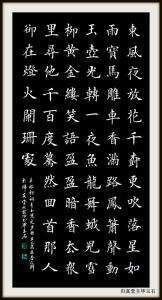 東風夜放花千樹更吹落星如
雨寶馬雕車香滿路鳳簫聲動
玉壺光轉一夜魚龍舞蛾兒雪
柳黃金縷笑語盈盈暗香去眾
里尋他千百度驀然回首那人
卻在燈火闌珊處